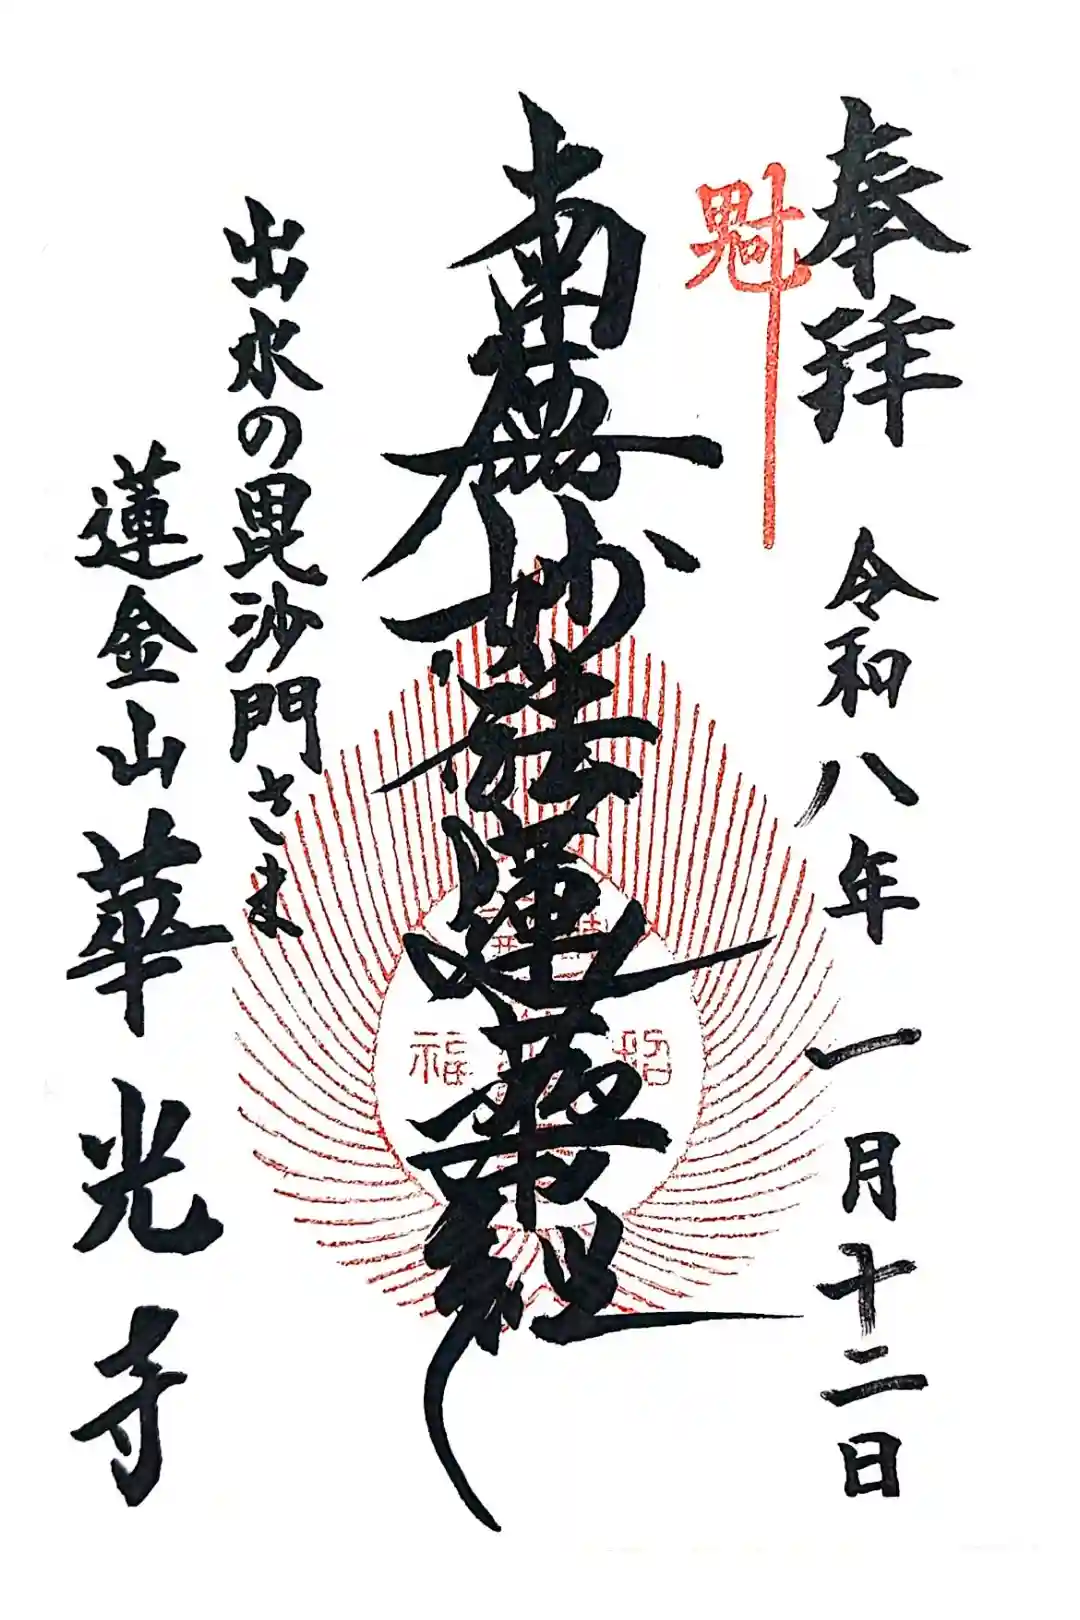 奉拝
令和八年一月十二日
魁
南無妙法蓮華経
福
招
出水の毘沙門さま
蓮金山華光寺